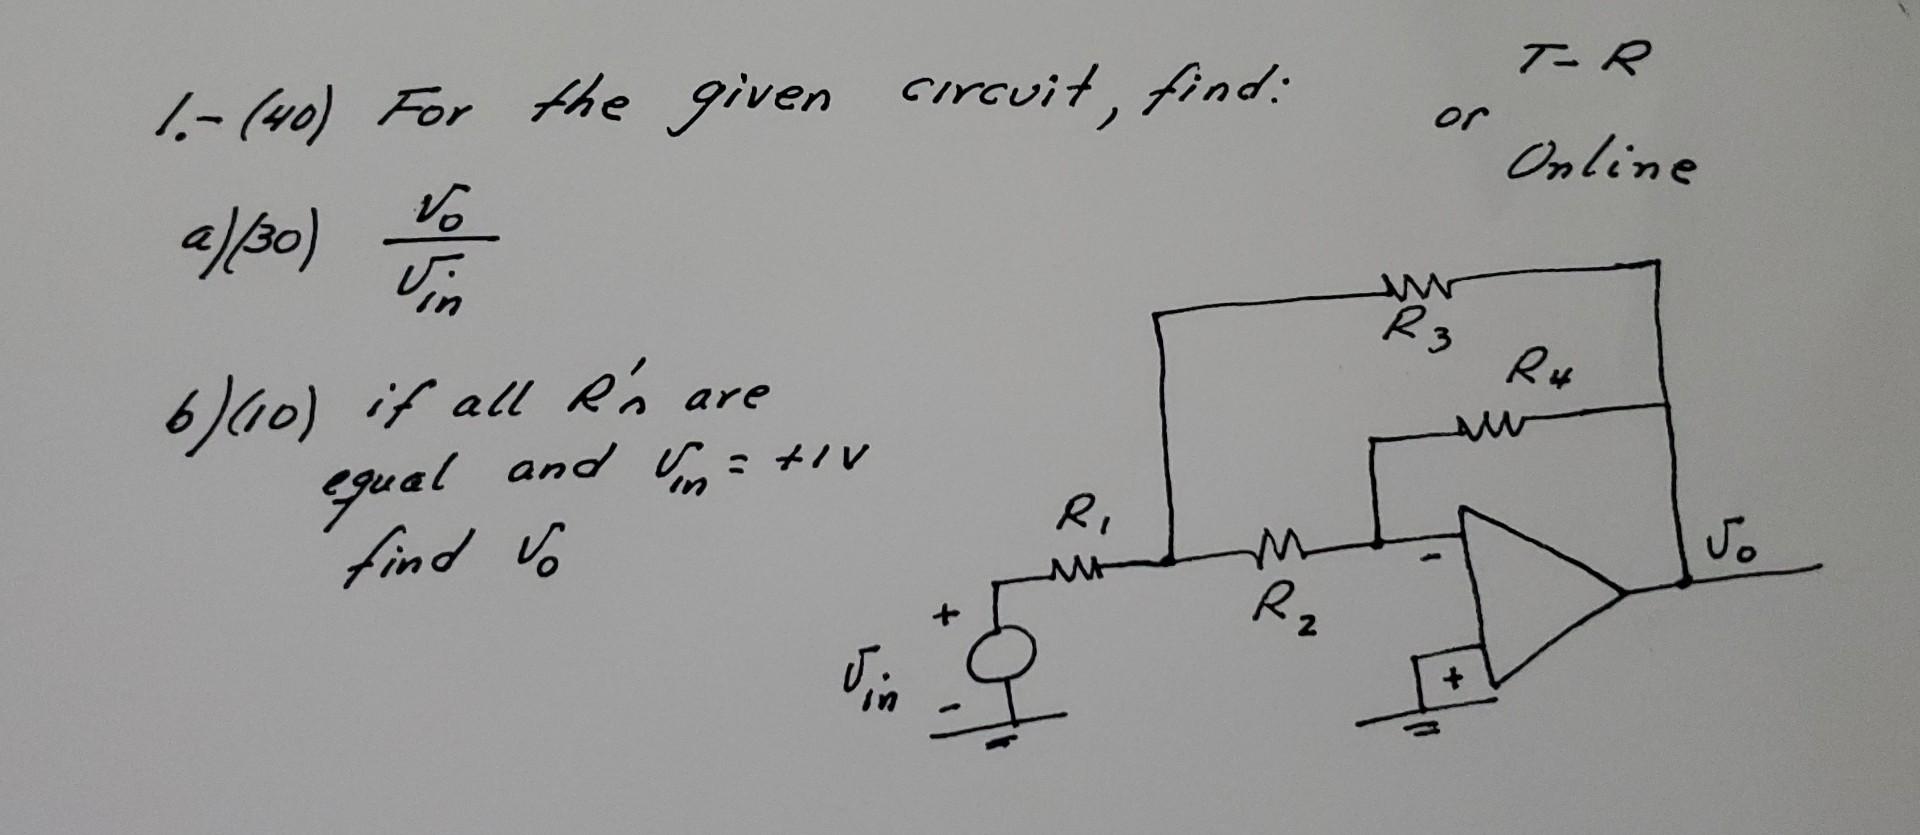 1.- (40) For the given circuit, find:
T-R
or
Online
a)(30) vo
vin
b)(10) if all R'n are
equal and vin = +1V
find vo
R3
R4
R1
R2
-
+
vo
+
vin
-